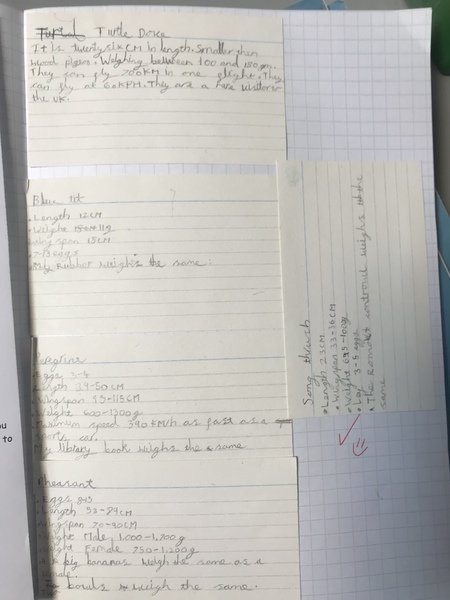 Turtle Dove
It is twenty six CM in length. Smaller than
wood pigens. Weighing between 100 and 180 gm.
They can fly 700KM in one flight. They
can fly at 60KPH. They are a rare visitor
the UK.
Blue tit
Length 12CM
Weight 11g
wing span 18CM
7-13 eggs
My Rubber weighs the same.
Song thrush
Length 23CM
Wing span 33-36CM
Weight 65-100g
Lay 3-5 eggs
The Romote controul weighs the
same
Eggs 3-4
39-50CM
Wingspan 95-115CM
Weight 600-1300g
speed 390KM/h as fast as a
sports car.
My library book weighs the same
Pheasant
Eggs 8-15
Length 53-89CM
Wingspan 70-90CM
Male 1,000-1,700g
Female 750-1,200g
big bananas weigh the same as a
bowls weigh the same.
to